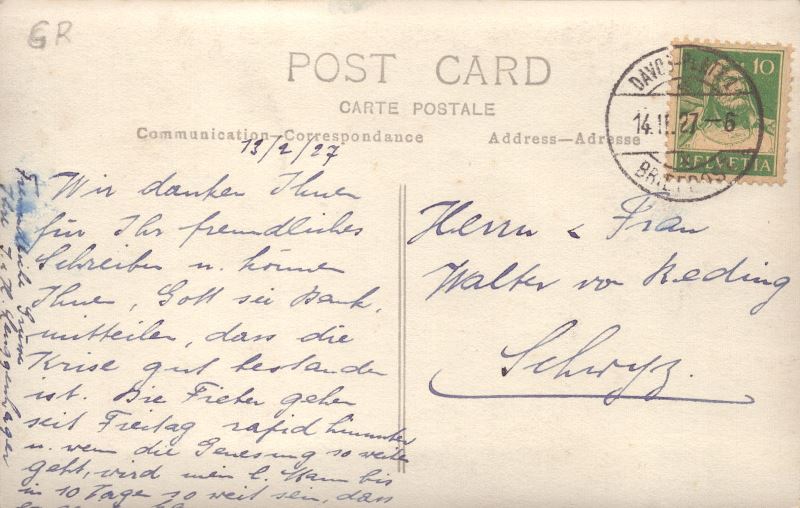 GR
POST CARD
CARTE POSTALE
Communication—Correspondance
Address—Adresse
10
HELVETIA
DAVOS-PLATZ 1
14.II.27—6
BRIEFPOST
13/2/27
Wir danken Ihnen
für Ihr freundliches
Schreiben u. können
Ihnen, Gott sei Dank,
mitteilen, dass die
Krise gut bestanden
ist. Die Fieber gehen
seit Freitag rapid hinunter
u. wenn die Genesung so weiter
geht, wird mein l. Mann bis
in 10 Tagen so weit sein, dass
Freundliche Grüsse
Herrn & Frau
Walter von Reding
Schwyz.